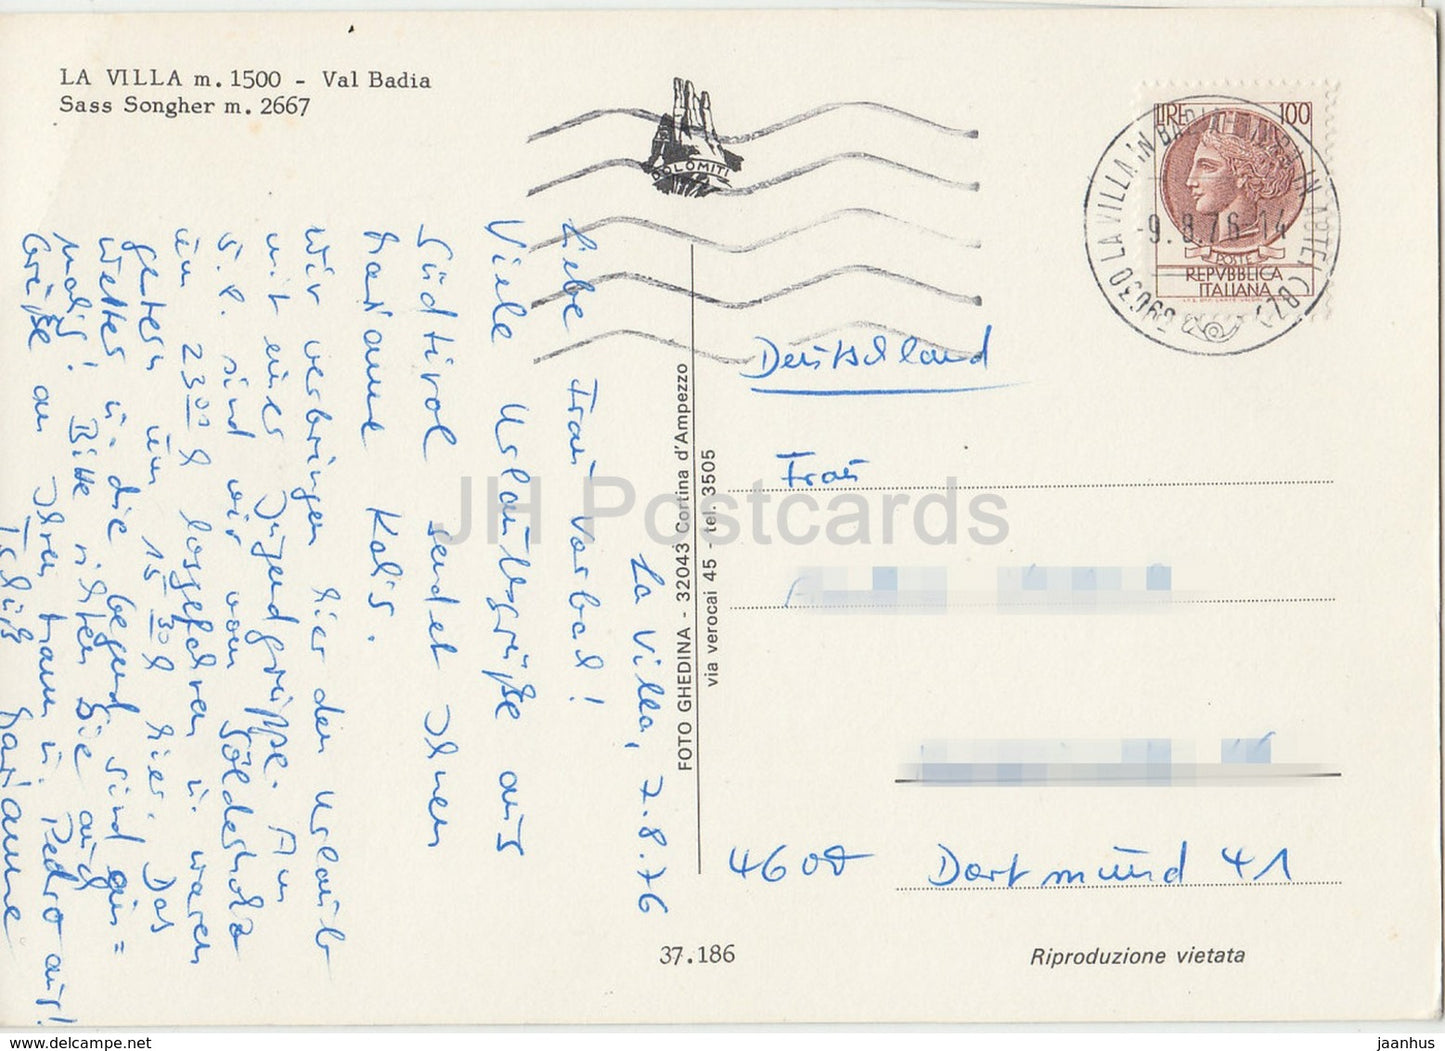 LA VILLA m. 1500 - Val Badia
Sass Songher m. 2667
DOLOMITI
LIRE 100
POSTE
REPVBBLICA
ITALIANA
39030 LA VILLA IN BADIA
-9.8.76-14
La Villa, 7.8.76
Liebe Frau Vorbad!
Viele Urlaubsgrüße aus
Südtirol sendet Ihnen
Marianne Kalis.
Wir verbringen hier den Urlaub
mit einer Jugendgruppe. Am
sind wir vom
um 23⁰⁰ h losgefahren u. waren
gestern um 15³⁰ h hier. Das
Wetter u. die Gegend sind ein=
malig! Bitte richten Sie auch
Grüße an Ihren Mann u. Pedro aus!
Tschüß Marianne
FOTO GHEDINA - 32043 Cortina d'Ampezzo
via verocai 45 - tel. 3505
Deutschland
Frau
4600 Dortmund 41
37.186
Riproduzione vietata
JH Postcards
hip-postcard.store
jaanhus